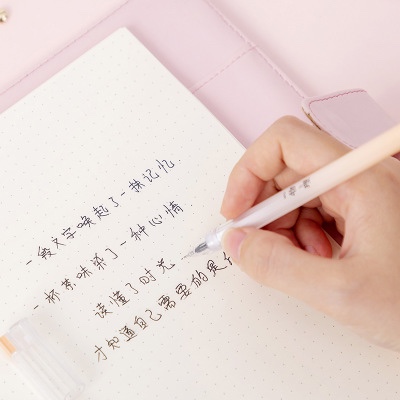 一段文字唤起了一抹记忆.
一杯茶味染了一种心情.
读懂了时光.
才知道自己需要的是什